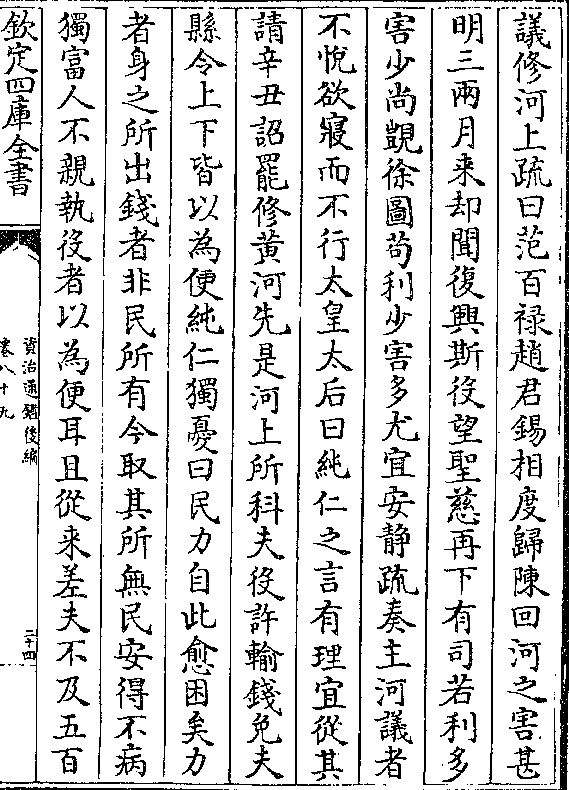 議修河上疏曰范百禄趙君錫相度歸陳回河之害甚
明三兩月来却聞復興斯役望聖慈再下有司若利多
害少尚覬徐圖苟利少害多尤宜安静疏奏主河議者
不悅欲寢而不行太皇太后曰純仁之言有理宜從其
請辛丑詔罷修黄河先是河上所科夫役許輸錢免夫
縣令上下皆以為便純仁獨憂曰民力自此愈困矣力
者身之所出錢者非民所有今取其所無民安得不病
獨富人不親執役者以為便耳且從来差夫不及五百
欽定四庫全書
資治通鑑後編
卷八十九
二十四